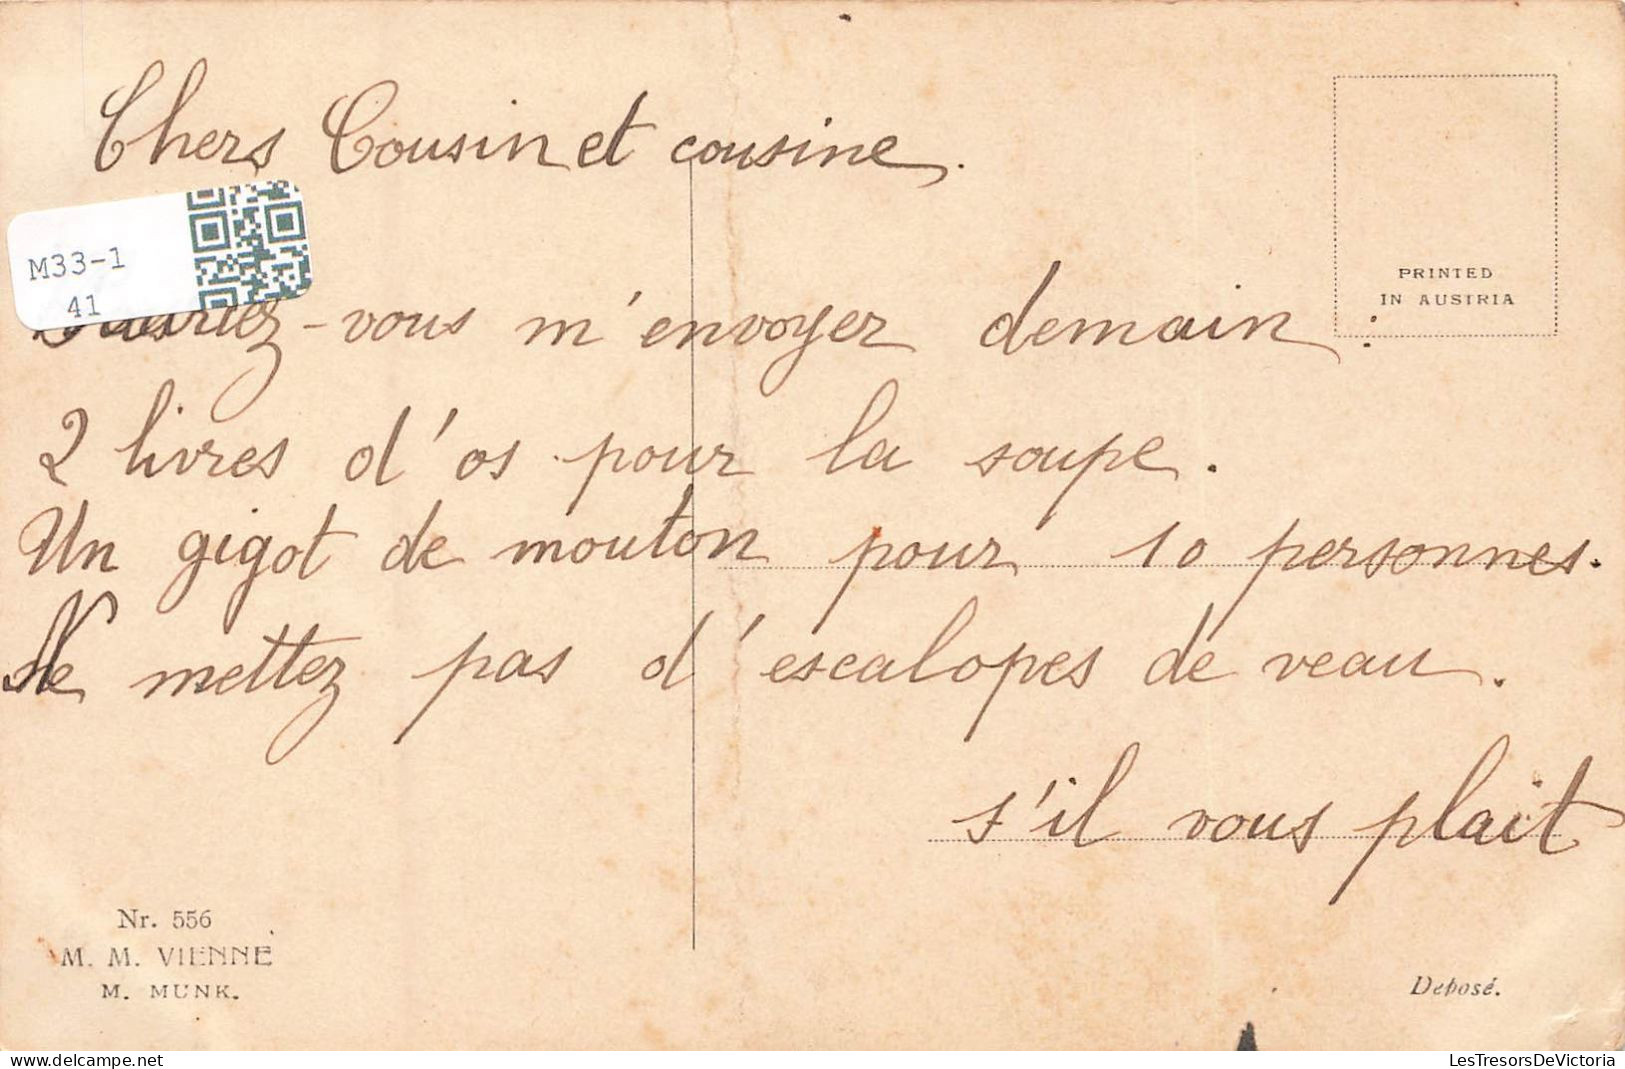 Chers Cousin et cousine.
M33-1
41
PRINTED
IN AUSTRIA
-vous m'envoyer demain :
2 livres d'os pour la soupe.
Un gigot de mouton pour 10 personnes.
Ne mettez pas d'escalopes de veau.
s'il vous plait
Nr. 556
M. M. VIENNE
M. MUNK.
Déposé.
LesTresorsDeVictoria